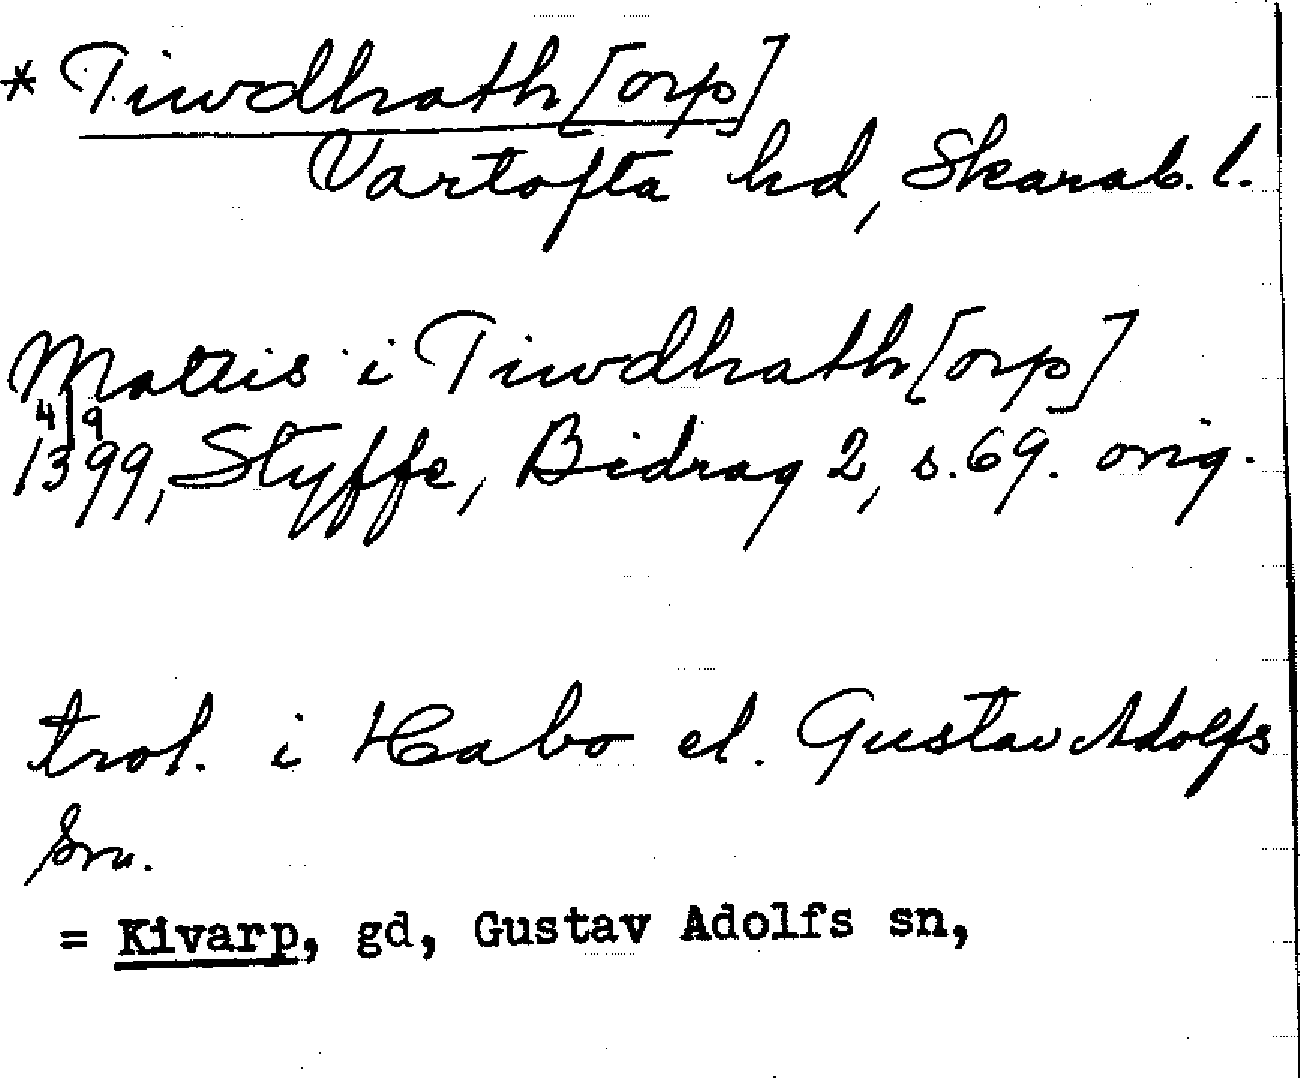 * Tiwdhath[orp]
Vartofta hd, Skarab. l.
Mattis i Tiwdhath[orp]
4/9
1399, Styffe, Bidrag 2, s. 69. orig.
trol. i Habo el. Gustav Adolfs
snr.
= Kivarp, gd, Gustav Adolfs sn,